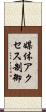 媒体アク
セス制御